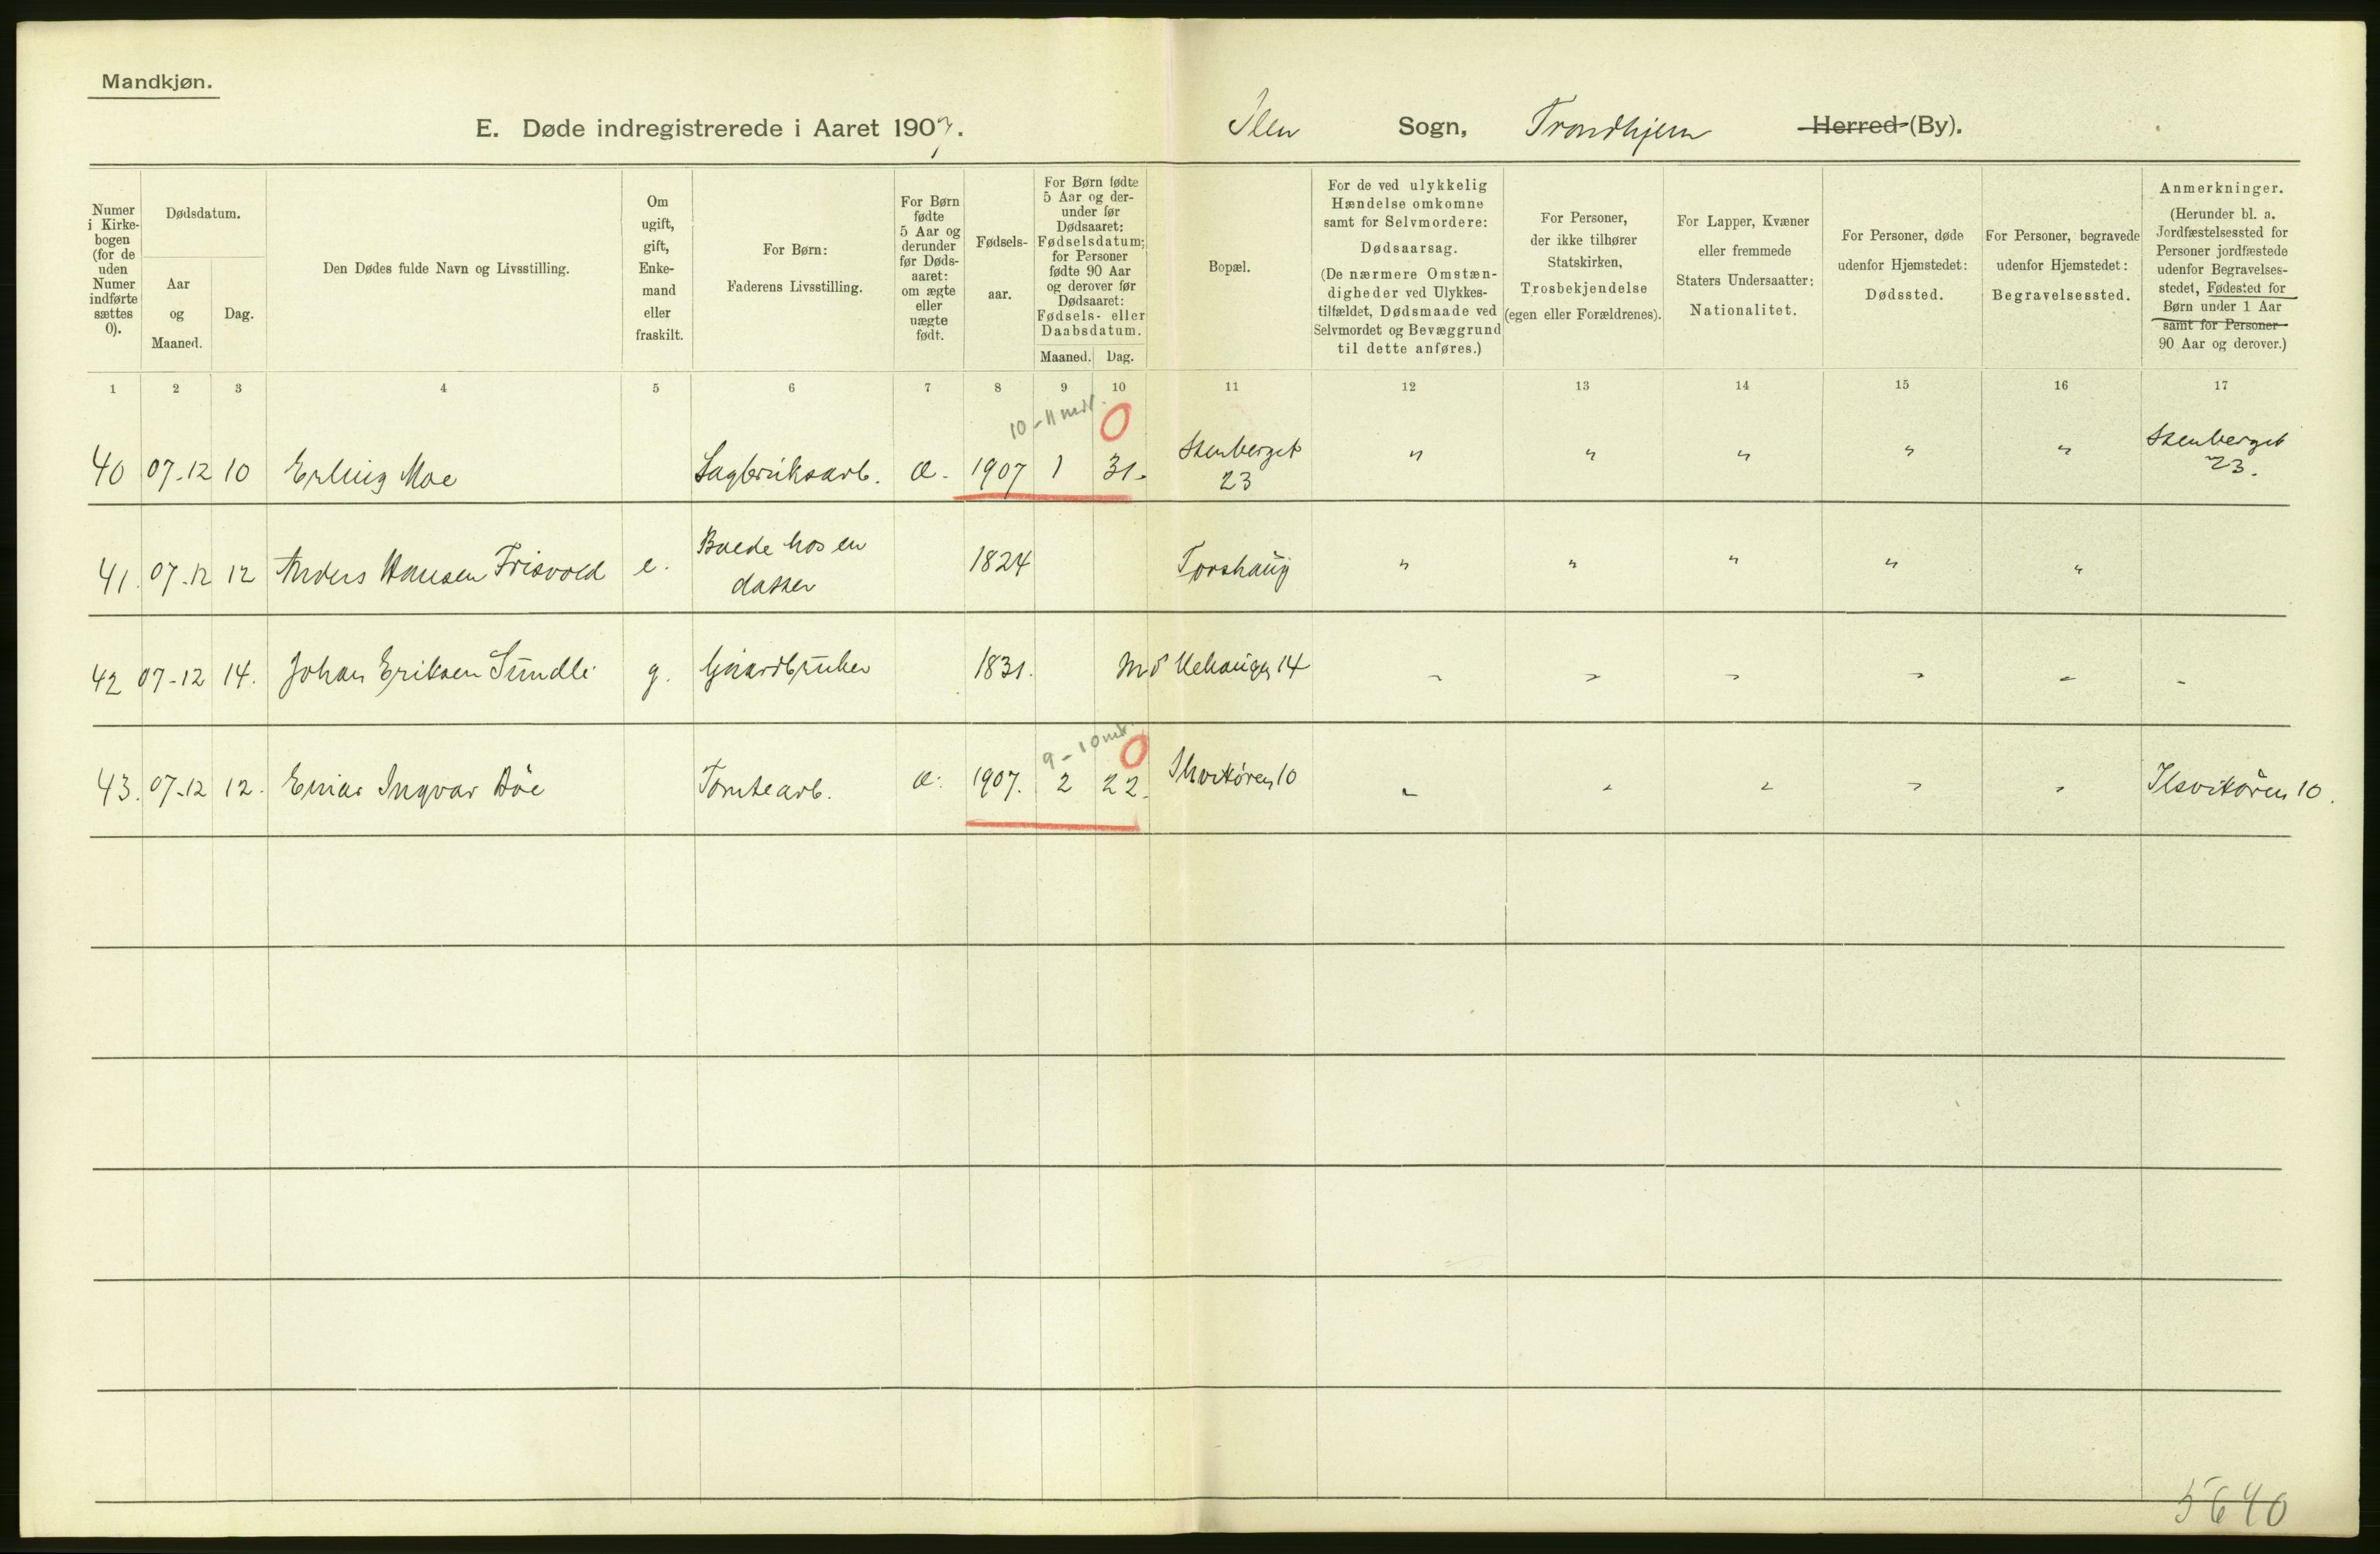 Mandkjøn.
E. Døde indregistrerede i Aaret 1907.
Ilen Sogn, Trondhjem Herred (By).
Numer i Kirkebogen (for de uden Numer indførte sættes 0).
Dødsdatum.
Aar og Maaned.
Dag.
Den Dødes fulde Navn og Livsstilling.
Om ugift, gift, Enkemand eller fraskilt.
For Børn: Faderens Livsstilling.
For Børn fødte 5 Aar og derunder før Dødsaaret: om ægte eller uægte født.
Fødselsaar.
For Børn fødte 5 Aar og derunder før Dødsaaret: Fødselsdatum; for Personer fødte 90 Aar og derover før Dødsaaret: Fødsels- eller Daabsdatum.
Maaned. Dag.
Bopæl.
For de ved ulykkelig Hændelse omkomne samt for Selvmordere: Dødsaarsag. (De nærmere Omstændigheder ved Ulykkestilfældet, Dødsmaade ved Selvmordet og Bevæggrund til dette anføres.)
For Personer, der ikke tilhører Statskirken, Trosbekjendelse (egen eller Forældrenes).
For Lapper, Kvæner eller fremmede Staters Undersaatter: Nationalitet.
For Personer, døde udenfor Hjemstedet: Dødssted.
For Personer, begravede udenfor Hjemstedet: Begravelsessted.
Anmerkninger. (Herunder bl. a. Jordfæstelsessted for Personer jordfæstede udenfor Begravelsesstedet, Fødested for Børn under 1 Aar samt for Personer 90 Aar og derover.)
1 2 3 4 5 6 7 8 9 10 11 12 13 14 15 16 17
10-11 mdr. 0
40 07-12 10 Erling Moe Sagbruksarb. æ. 1907 1 31. Stenberget 23 " " " " " Stenberget 23.
41. 07-12 12 Anders Hansen Frisvold e. Boede hos en datter 1824 Torshaug " " " " "
42 07-12 14. Johan Eriksen Sundli g. Gaardbruker 1831. 14 " " " " " "
9-10 mdr. 0
43. 07-12 12. Einar Ingvar Bøe Tomtearb. æ. 1907. 2 22. Ilsvikøren 10 " " " " " Ilsvikøren 10.
5640